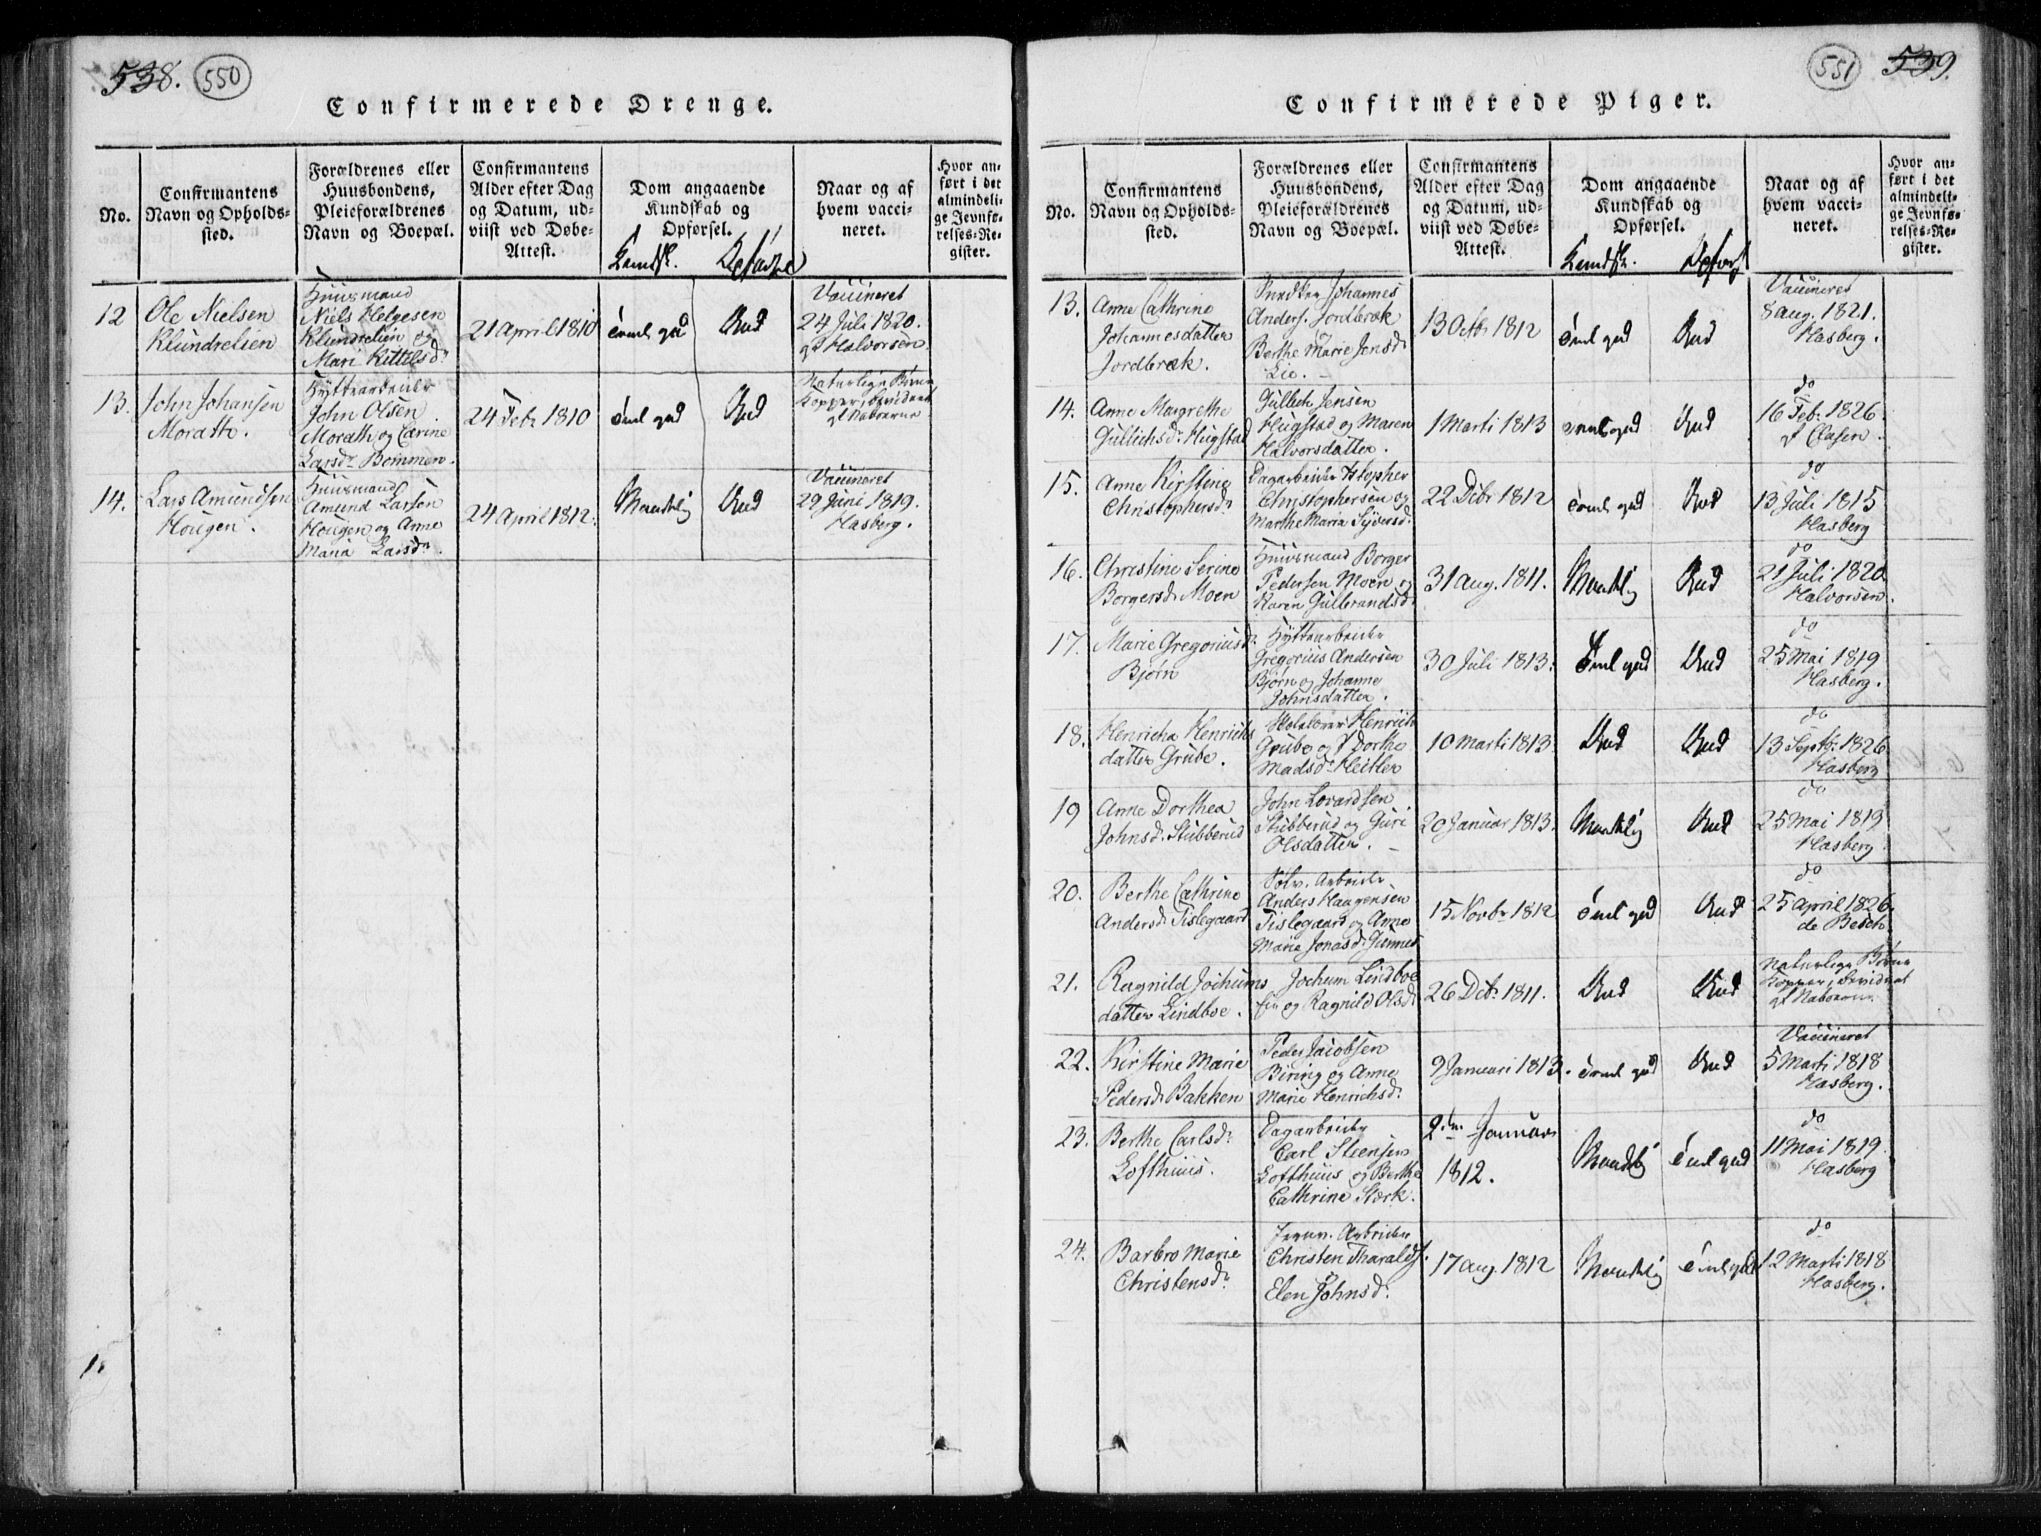 538. 550
Confirmerede Drenge.
No.
Confirmantens
Navn og Opholds-
sted.
Forældrenes eller
Huusbondens,
Pleieforældrenes
Navn og Boepæl.
Confirmantens
Alder efter Dag
og Datum, ud-
viist ved Døbe-
Attest.
Dom angaaende
Kundskab og
Opførsel.
Kundsk. Opførsel
Naar og af
hvem vacci-
neret.
Hvor an-
ført i det
almindeli-
ge Jevnfø-
relses-Re-
gister.
12
Ole Nielsen
Klundrelien
Huusmand
Niels Helgesen
Klundrelien og
Mari Kittelsdr
21 April 1810
God
Vaccineret
24 Juli 1820.
af Halvorsen
13.
John Johansen
Morath.
Hÿttearbeider
John Olsen
Morath og Carine
Larsdr Bommen.
24 Febr 1810
God
Naturlige Børne
Kopper,
af Naboerne
14.
Lars Amundsen
Hougen.
Huusmand
Amund Larsen
Hougen og Anne
Maria Larsdr.
24 April 1812.
Maadelig
God
Vaccineret
29 Juni 1819.
Hasberg.
551 539
Confirmerede Piger.
No.
Confirmantens
Navn og Opholds-
sted.
Forældrenes eller
Huusbondens,
Pleieforældrenes
Navn og Boepæl.
Confirmantens
Alder efter Dag
og Datum, ud-
viist ved Døbe-
Attest.
Dom angaaende
Kundskab og
Opførsel.
Kundsk. Opførs
Naar og af
hvem vacci-
neret.
Hvor an-
ført i det
almindeli-
ge Jevnfø-
relses-Re-
gister.
13.
Anne Cathrine
Johannesdatter
Jordbræk.
Snedker Johannes
Anders. Jordbræk
Berthe Marie Jensdr
Lie.
13 Octbr 1812
God
Vaccineret
8 aug. 1821.
Hasberg.
14.
Anne Margrethe
Gullichsdr Hugstad
Gullich Jensen
Hugstad og Maren
Halvorsdatter.
1 Marti 1813
God
do
16 Febr. 1826
af Olasen.
15.
Anne Kirstine
Christophersdr
Dagarbeider Xstopher
Christophersen og
Marthe Maria Syversdr
22 Decbr 1812
God
do
13 Juli 1815
Hasberg
16.
Christine Serine
Borgersdr Moen
Huusmand Borger
Pedersen Moen og
Karen Gulbrandsdr
31 aug. 1811.
Maadelig
God
do
21 Juli 1820
Halvorsen.
17.
Marie Gregoriusdr
Bjørn
Hÿttearbeider
Gregorius Andersen
Bjørn og Johanne
Johnsdatter.
30 Juli 1813.
God
do
25 Mai 1819
Hasberg.
18.
Henricha Henrichs
datter Grube.
Skolelærer Henrich
Grube og Dorthe
Madsdr Heitler
10 Marti 1813.
God
God
do
13 Septbr. 1826
Hasberg
19
Anne Dorthea
Johnsdr Stubberud
John Lovardsen
Stubberud og Guri
Olsdatter.
20 Januar 1813.
Maadelig
God
do
25 Mai 1819
Hasberg
20.
Berthe Cathrine
Andersdr Tislegaard
Sølv. Arbeider
Anders Haagensen
Tislegaard og Anne
Marie Jonasdr Gunnes
15 Novbr 1812
God
do
25 april 1826.
de Besch.
21.
Ragnild Jochums
datter Lindboe.
Jochum Lindboe
og Ragnild Olsdr
26 Decbr. 1811.
God
God
Naturlige Børne
Kopper,
af Naboerne
22.
Kirstine Marie
Pedersdr Bakken
Peder Jacobsen
Biring og Anne
Marie Henrichsdr
9 Januari 1813.
God
Vaccineret
5 Marti 1818
Hasberg.
23.
Berthe Carlsdr
Lofthuus.
Dagarbeider
Carl Steensen
Lofthuus og Berthe
Cathrine Stærk.
2den Januar
1812.
Maadelig
do
11 Mai 1819
Hasberg
24.
Barbro Marie
Christensdr
Arbeider
Christen Tharaldsr.
Elen Johnsdr.
17 aug. 1812
Maadelig
do
12 Marti 1818
Hasberg.